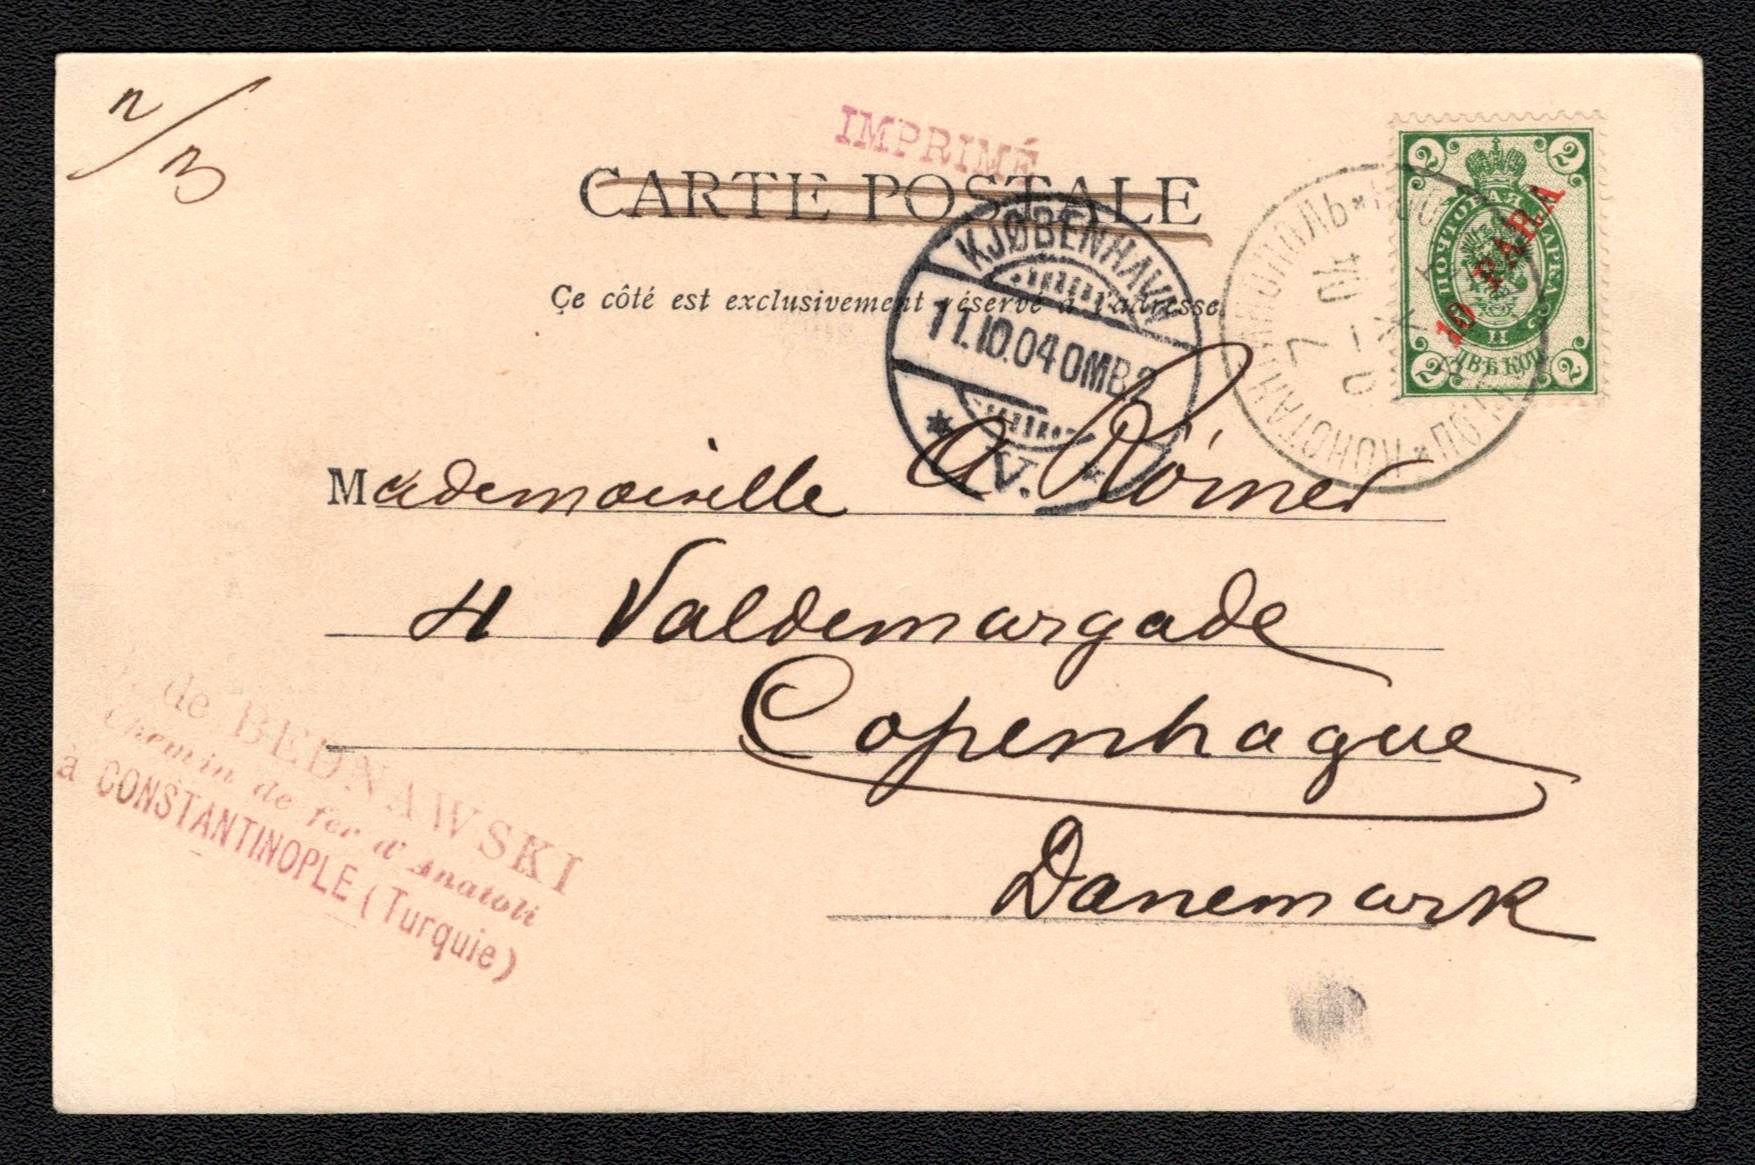 n/3
IMPRIMÉ
CARTE POSTALE
Ce côté est exclusivement réservé à l'adresse.
KJØBENHAVN
11.10.04 OMB 2
V.
2 2
ПОЧТОВАЯ МАРКА
10 PARA
ДВѢ КОП
2 2
КОНСТАНТИНОПОЛЬ
04
7
Mademoiselle A Römer
41 Valdemargade
Copenhague
Danemark
de BEDNAWSKI
Chemin de fer d'Anatoli
à CONSTANTINOPLE (Turquie)